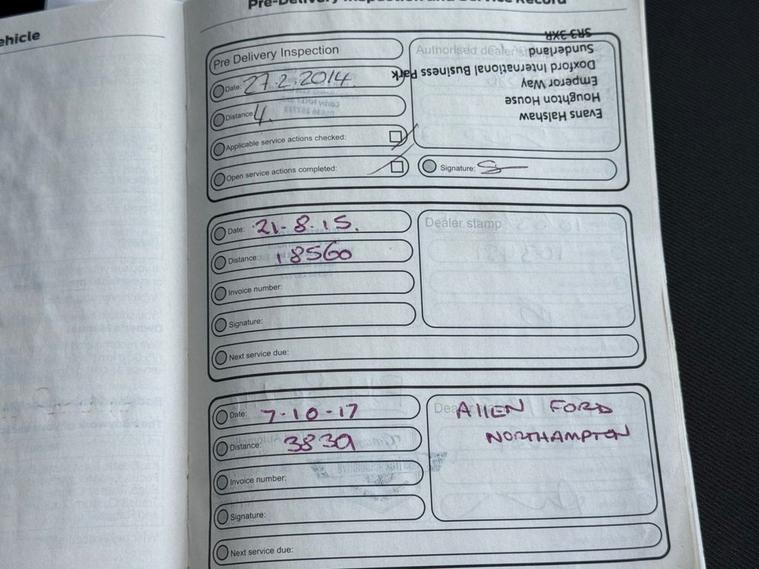 ehicle
Pre-Delivery Inspection and Service Record
Pre Delivery Inspection
Date: 27.2.2014.
Distance: 4.
Applicable service actions checked:
Open service actions completed:
Authorised dealer
Evans Halshaw
Houghton House
Emperor Way
Doxford International Business Park
Sunderland
SR3 3XR
Signature:
Date: 21-8-15.
Distance: 18560
Invoice number:
Signature:
Next service due:
Dealer stamp
Date: 7-10-17
Distance:
Invoice number:
Signature:
Next service due:
AllEN FORD
NORTHAMPTON